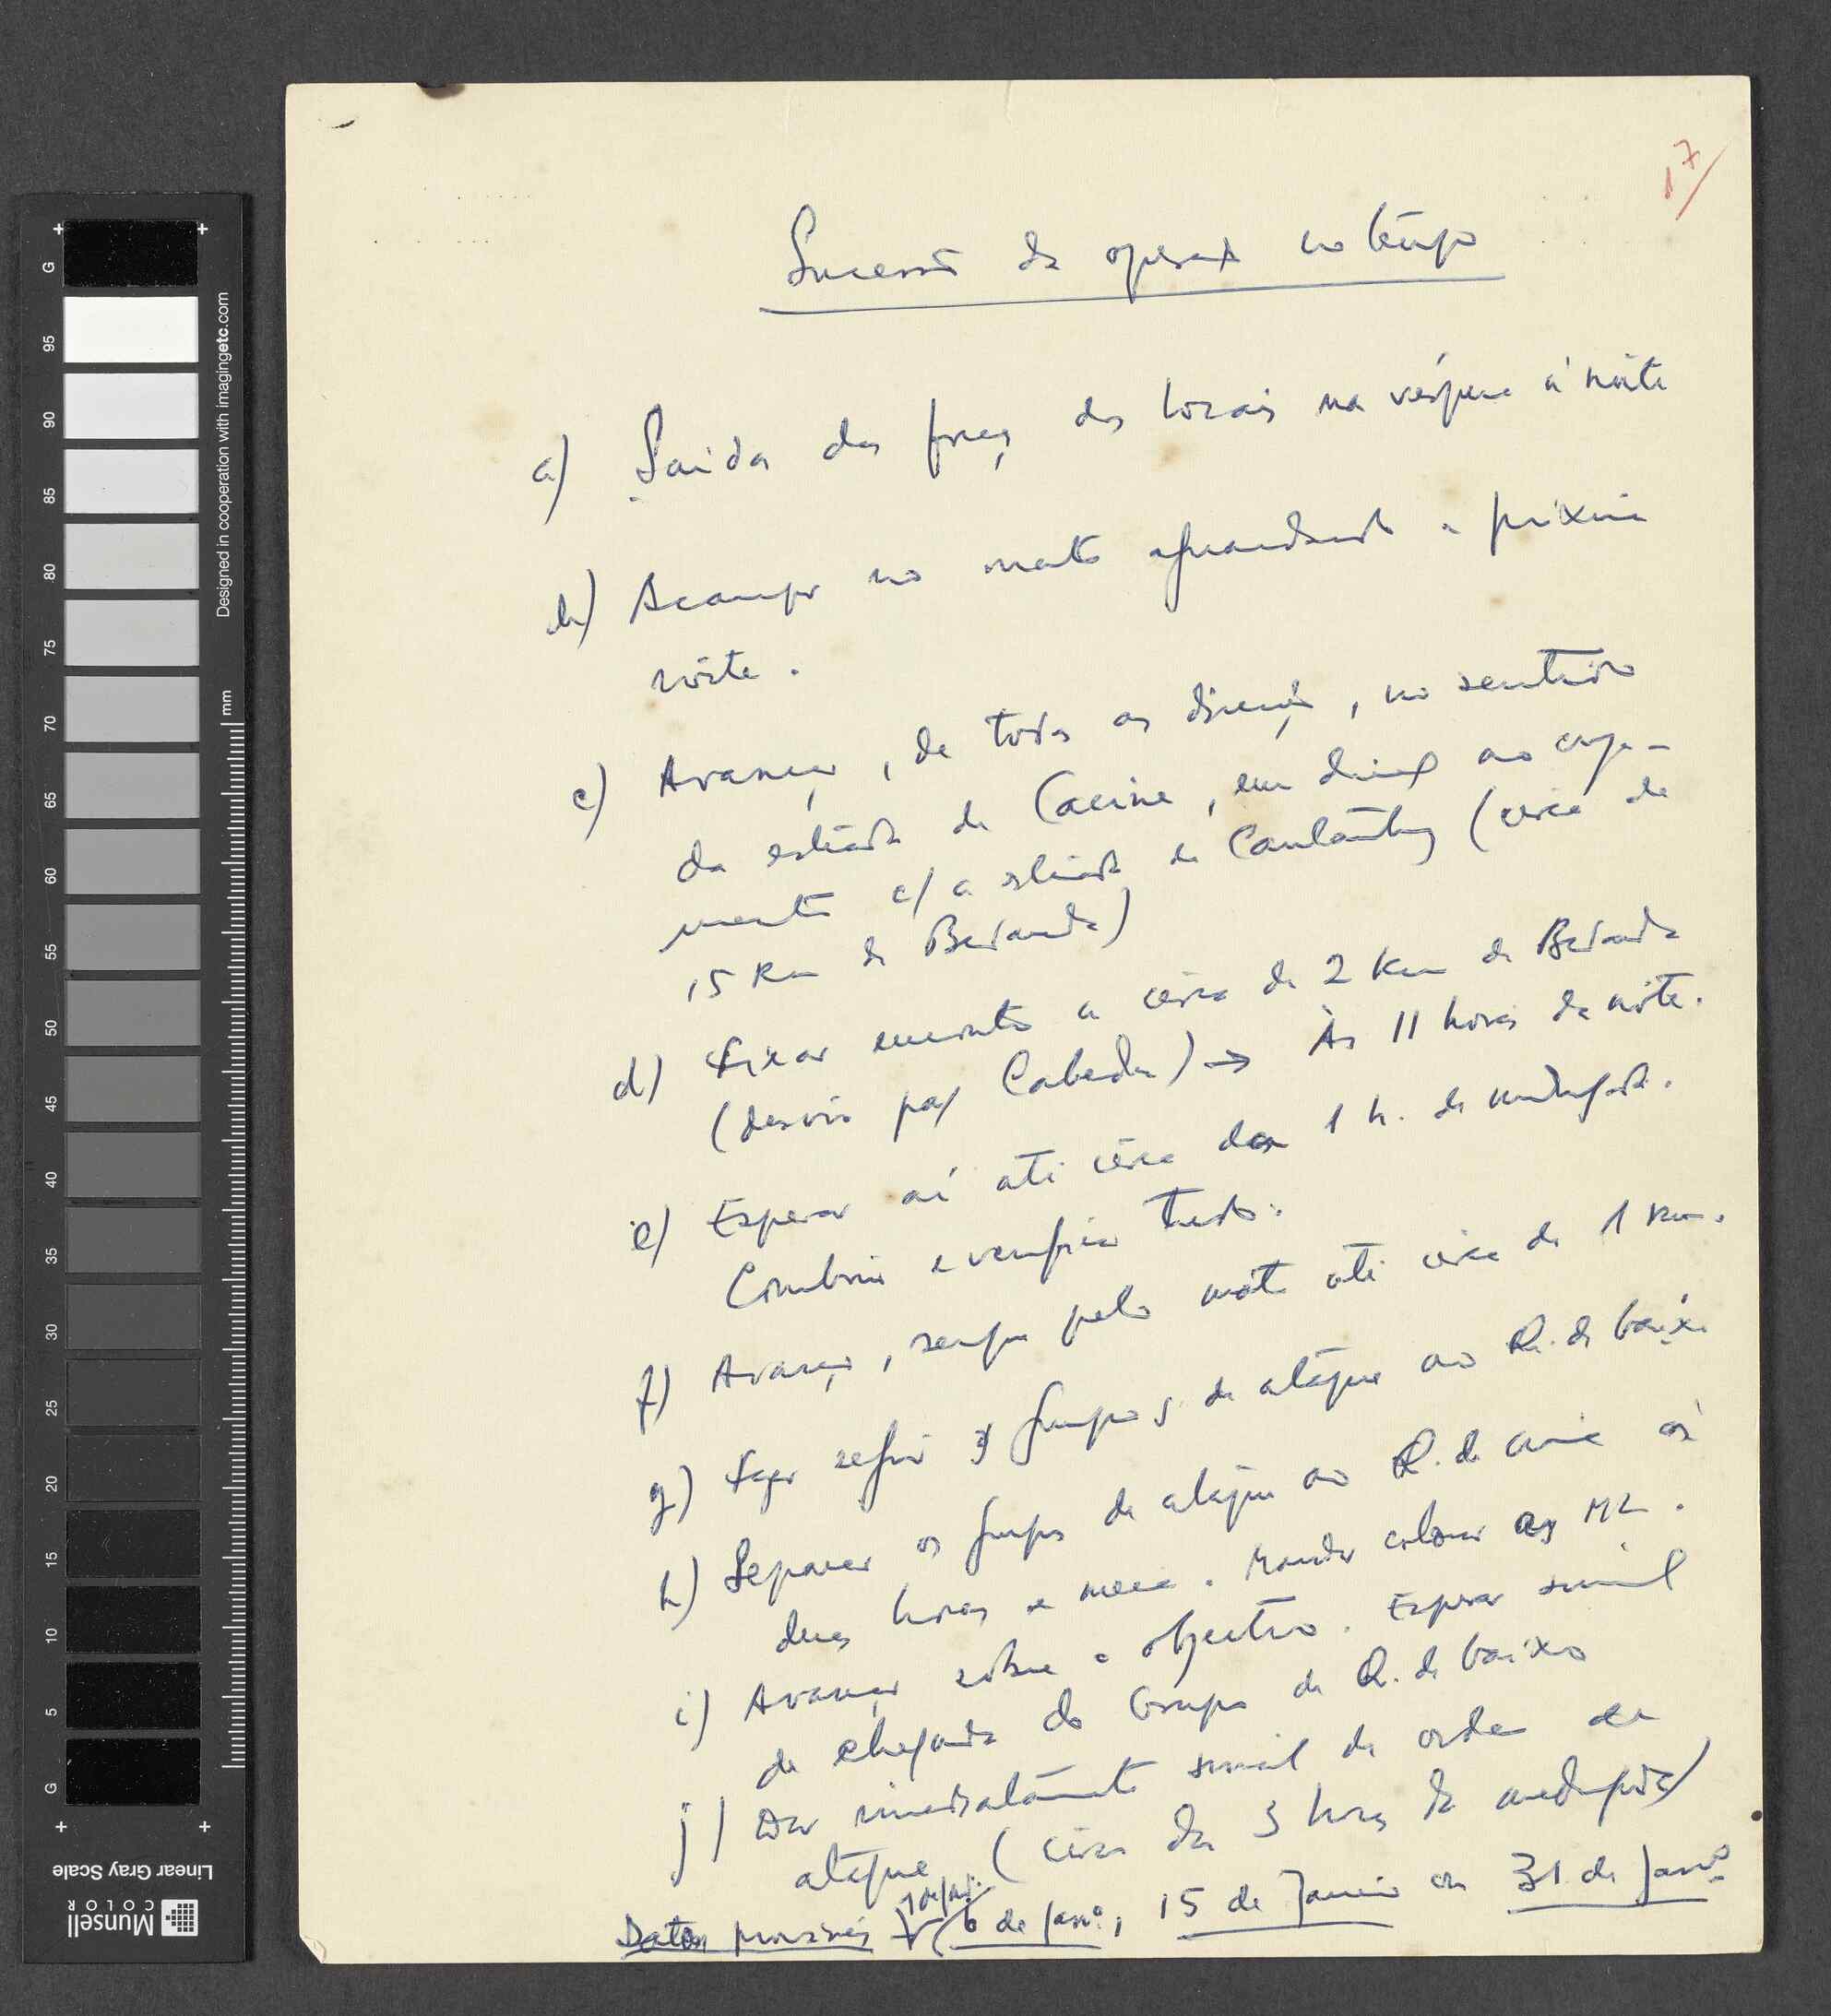 17
Sucessão da operação no tempo
a) Saída das forças dos locais na véspera à noite
b) Acampar no mato aguardando a próxima
noite.
c) Avançar, de todas as direcções, no sentido
da estrada de Cacine, em direcção ao cruza-
mento c/ a estrada de (cerca de
15 Km de Bedanda)
d) Fixar encontro a cerca de 2 Km de Bedanda
(desvio para Cabedu) → Às 11 horas da noite.
e) Esperar aí até cêrca das 1 h. da madrugada.
Combinar e verificar tudo.
f) Avançar, sempre pelo mato até cerca de 1 Km.
g) Fazer seguir grupos de ataque ao Q. de baixo
h) Separar os grupos de ataque ao Q. de cima às
duas horas e meia. Mandar colocar as ML.
i) Avançar sôbre o objectivo. Esperar sinal
de chegada do Grupo de Q. de baixo
j) Dar imediatamente sinal de ordem de
ataque (cêrca das 3 horas da madrugada)
Datas possíveis 6 de Janº, 15 de Janeiro ou 31 de Janº
G
95
90
85
80
75
70
65
60
55
50
45
40
35
30
25
20
15
10
5
G
mm
Designed in cooperation with imagingetc.com
Linear Gray Scale
Munsell
COLOR